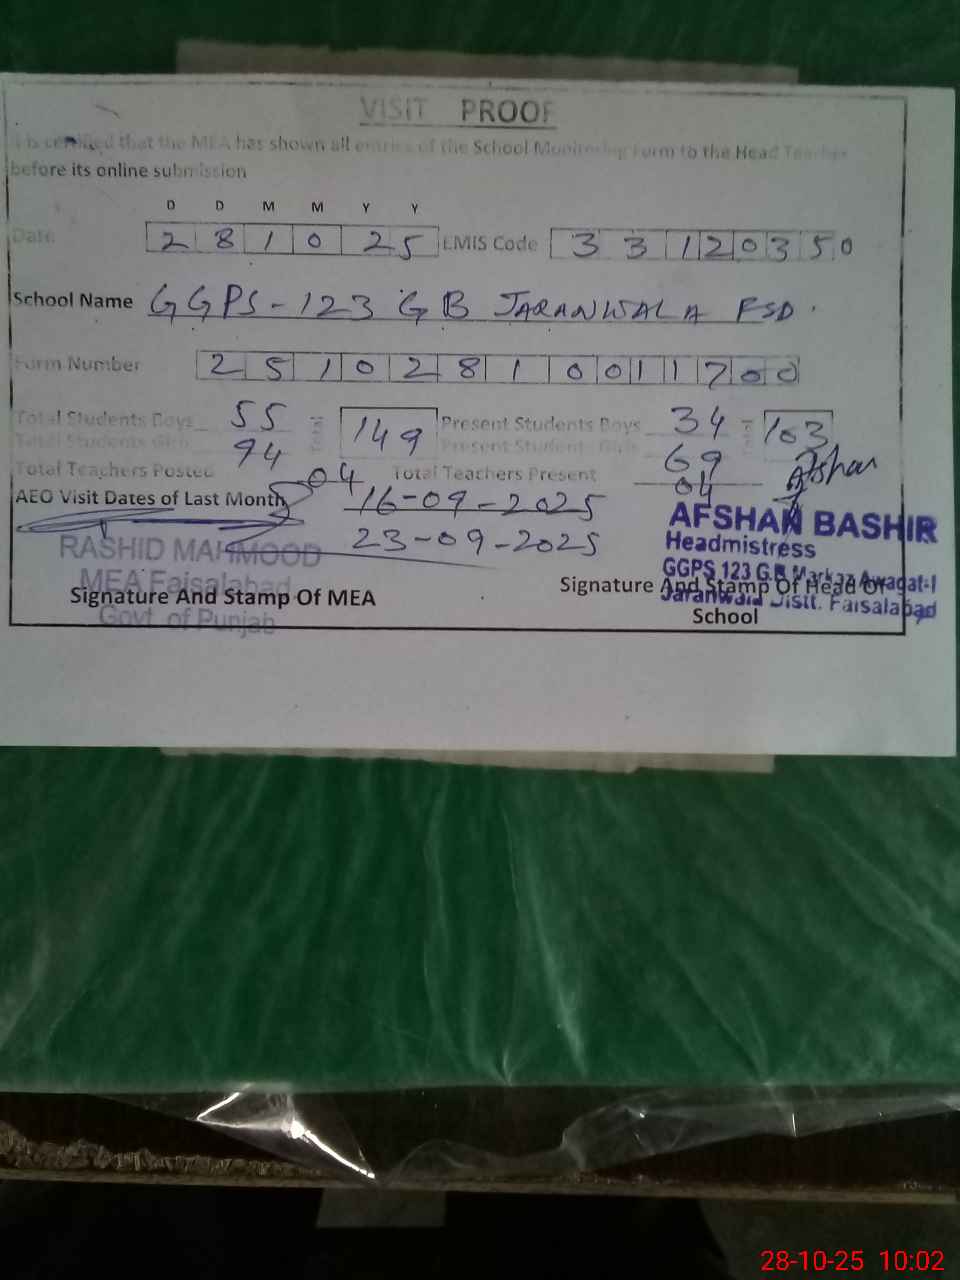 VISIT PROOF
It is certified that the MEA has shown all entries of the School Monitoring Form to the Head Teacher
before its online submission
D D M M Y Y
Date 2 8 1 0 2 5 EMIS Code 3 3 1 2 0 3 5 0
School Name GGPS-123 GB JARANWALA FSD.
Form Number 2 5 1 0 2 8 1 0 0 1 1 7 0 0
Total Students Boys 55 Total 149 Present Students Boys 34 Total 103
Total Students Girls 94 Present Students Girls 69
Total Teachers Posted 04 Total Teachers Present 04
Afshan
AEO Visit Dates of Last Month 16-09-2025
23-09-2025
RASHID MAHMOOD
MEA Faisalabad
Govt. of Punjab
Signature And Stamp Of MEA
AFSHAN BASHIR
Headmistress
GGPS 123 G.B Markaz Awagat-I
Jaranwala Distt. Faisalabad
Signature And Stamp Of Head Of
School
28-10-25 10:02